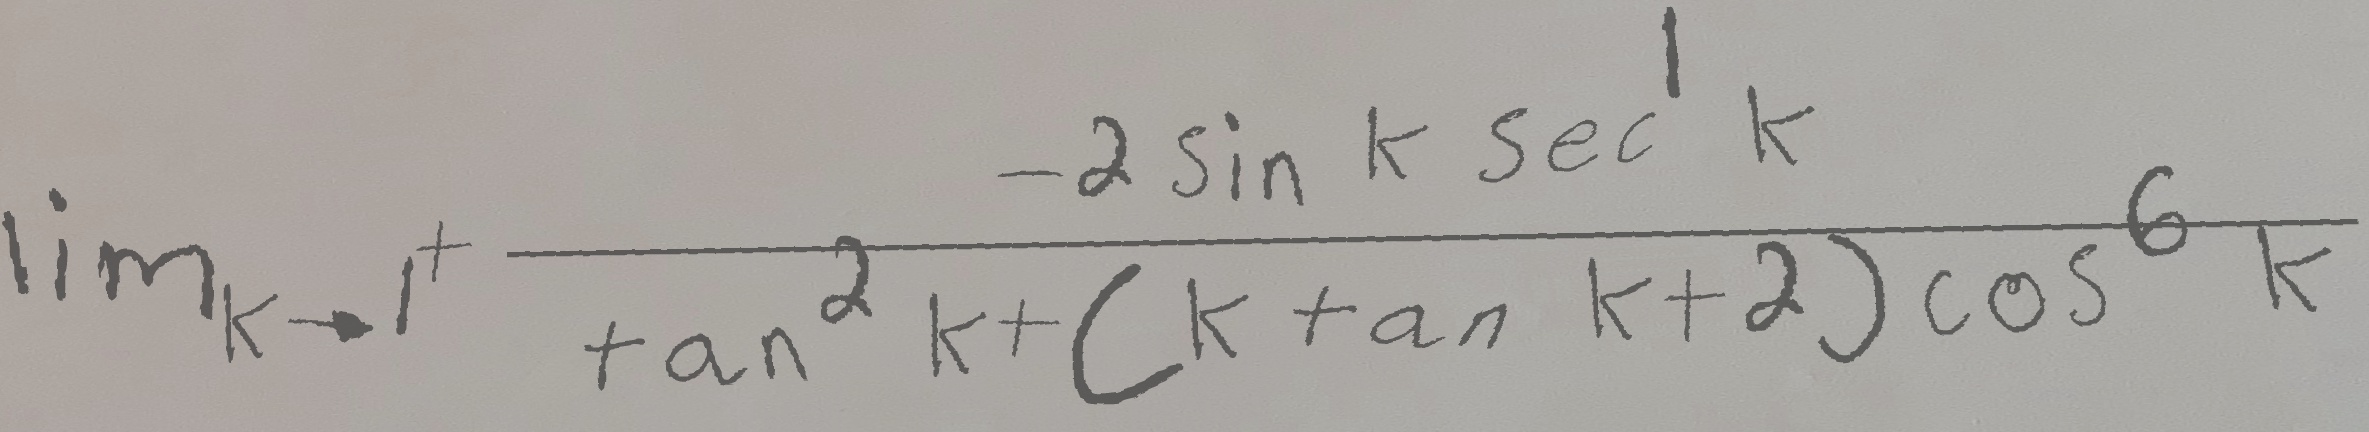 \lim_{k \to 1^+} \frac{-2 \sin k \sec^1 k}{\tan^2 k + (k \tan k + 2) \cos^6 k}